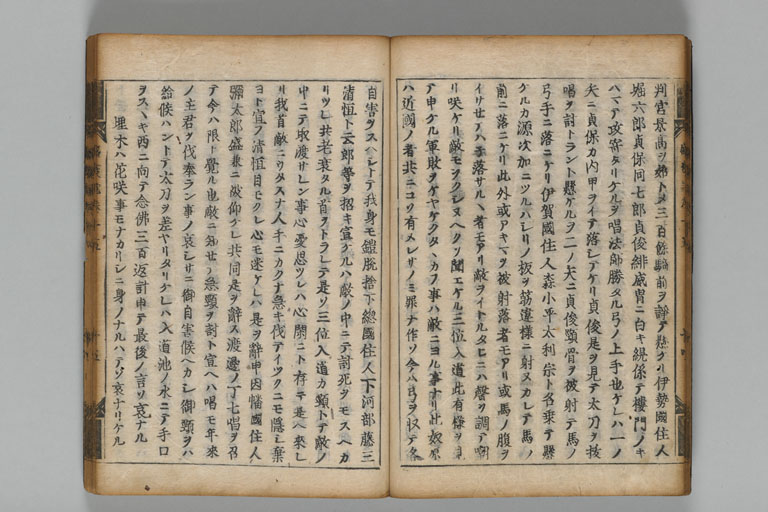 判官景高ヲ始トメ三百餘騎前ヲ諍テ懸ケリ伊勢國住人
堀六郎貞保同七郎貞俊緋威冑ニ白キ幌係テ樓門ノキ
ハマテ攻寄タリケルヲ唱法師勝タル弓ノ上手也ケレハ一ノ
矢ニ貞保カ内甲ヲイテ落シテケリ貞俊是ヲ見テ太刀ヲ抜
唱ヲ討トラント懸ケルヲ二ノ矢ニ貞俊頸骨ヲ被射テ馬ノ
弓手ニ落ニケリ伊賀國住人森小平太利宗ト名乗テ懸
ケルカ源次加ニツルハシリノ板ヲ筋違様ニ射ヌカレテ馬ノ
前ニ落ニケリ此外或アキマヲ被射落者モアリ或馬ノ腹ヲ
イサセテハネ落サルヽ者モアリ敵ヲイトルタヒニハ聲ヲ調テ
リ咲ケリ敵モヲクレヌヘクソ聞エケル三位入道此有様ヲ
テ申ケル軍敗ヲケヤケクタヽカフ事ハ敵ニヨル事ナリ此奴原
ハ近國ノ者共ニコソ有メレサノミ罪ナ作ソ今ハ弓ヲ収テ各
自害ヲスヘシトテ我身モ鎧脱捨下總國住人下河部藤三
清恒ト云郎等ヲ招キ宣ケルハ敵ノ中ニテ討死ヲモスヘカ
リツレ共老衰タル首ヲトラレテ是ソ三位入道カ頸トテ敵ノ
中ニテ取渡サレン事心憂思ツレハ心閑ニト存テ是ヘ來レ
リ我首敵ニワタスナ人手ニカクナ急キ伐テイツクニモ隱シ棄
ヨト宣フ清恒目モクレ心モ迷ケレハ是ヲ辭申因幡國住人
彌太郎盛兼ニ被仰ケレ共同是ヲ辭ス渡邊ノ丁七唱ヲ召
テ今ハ限ト覺ル也敵ニ知セヌ急頸ヲ討ト宣ヘハ唱モ年來
ノ主君ヲ伐奉ラン事ノ哀シサニ御自害候ヘカシ御頸ヲハ
給候ハントテ太刀ヲ差ヤリタリケレハ入道池ノ水ニテ手口
ヲスヽキ西ニ向テ念佛三百返計申テ最後ノ言ソ哀ナル
埋木ハ花咲事モナカリシニ身ノナルハテソ哀ナリケル